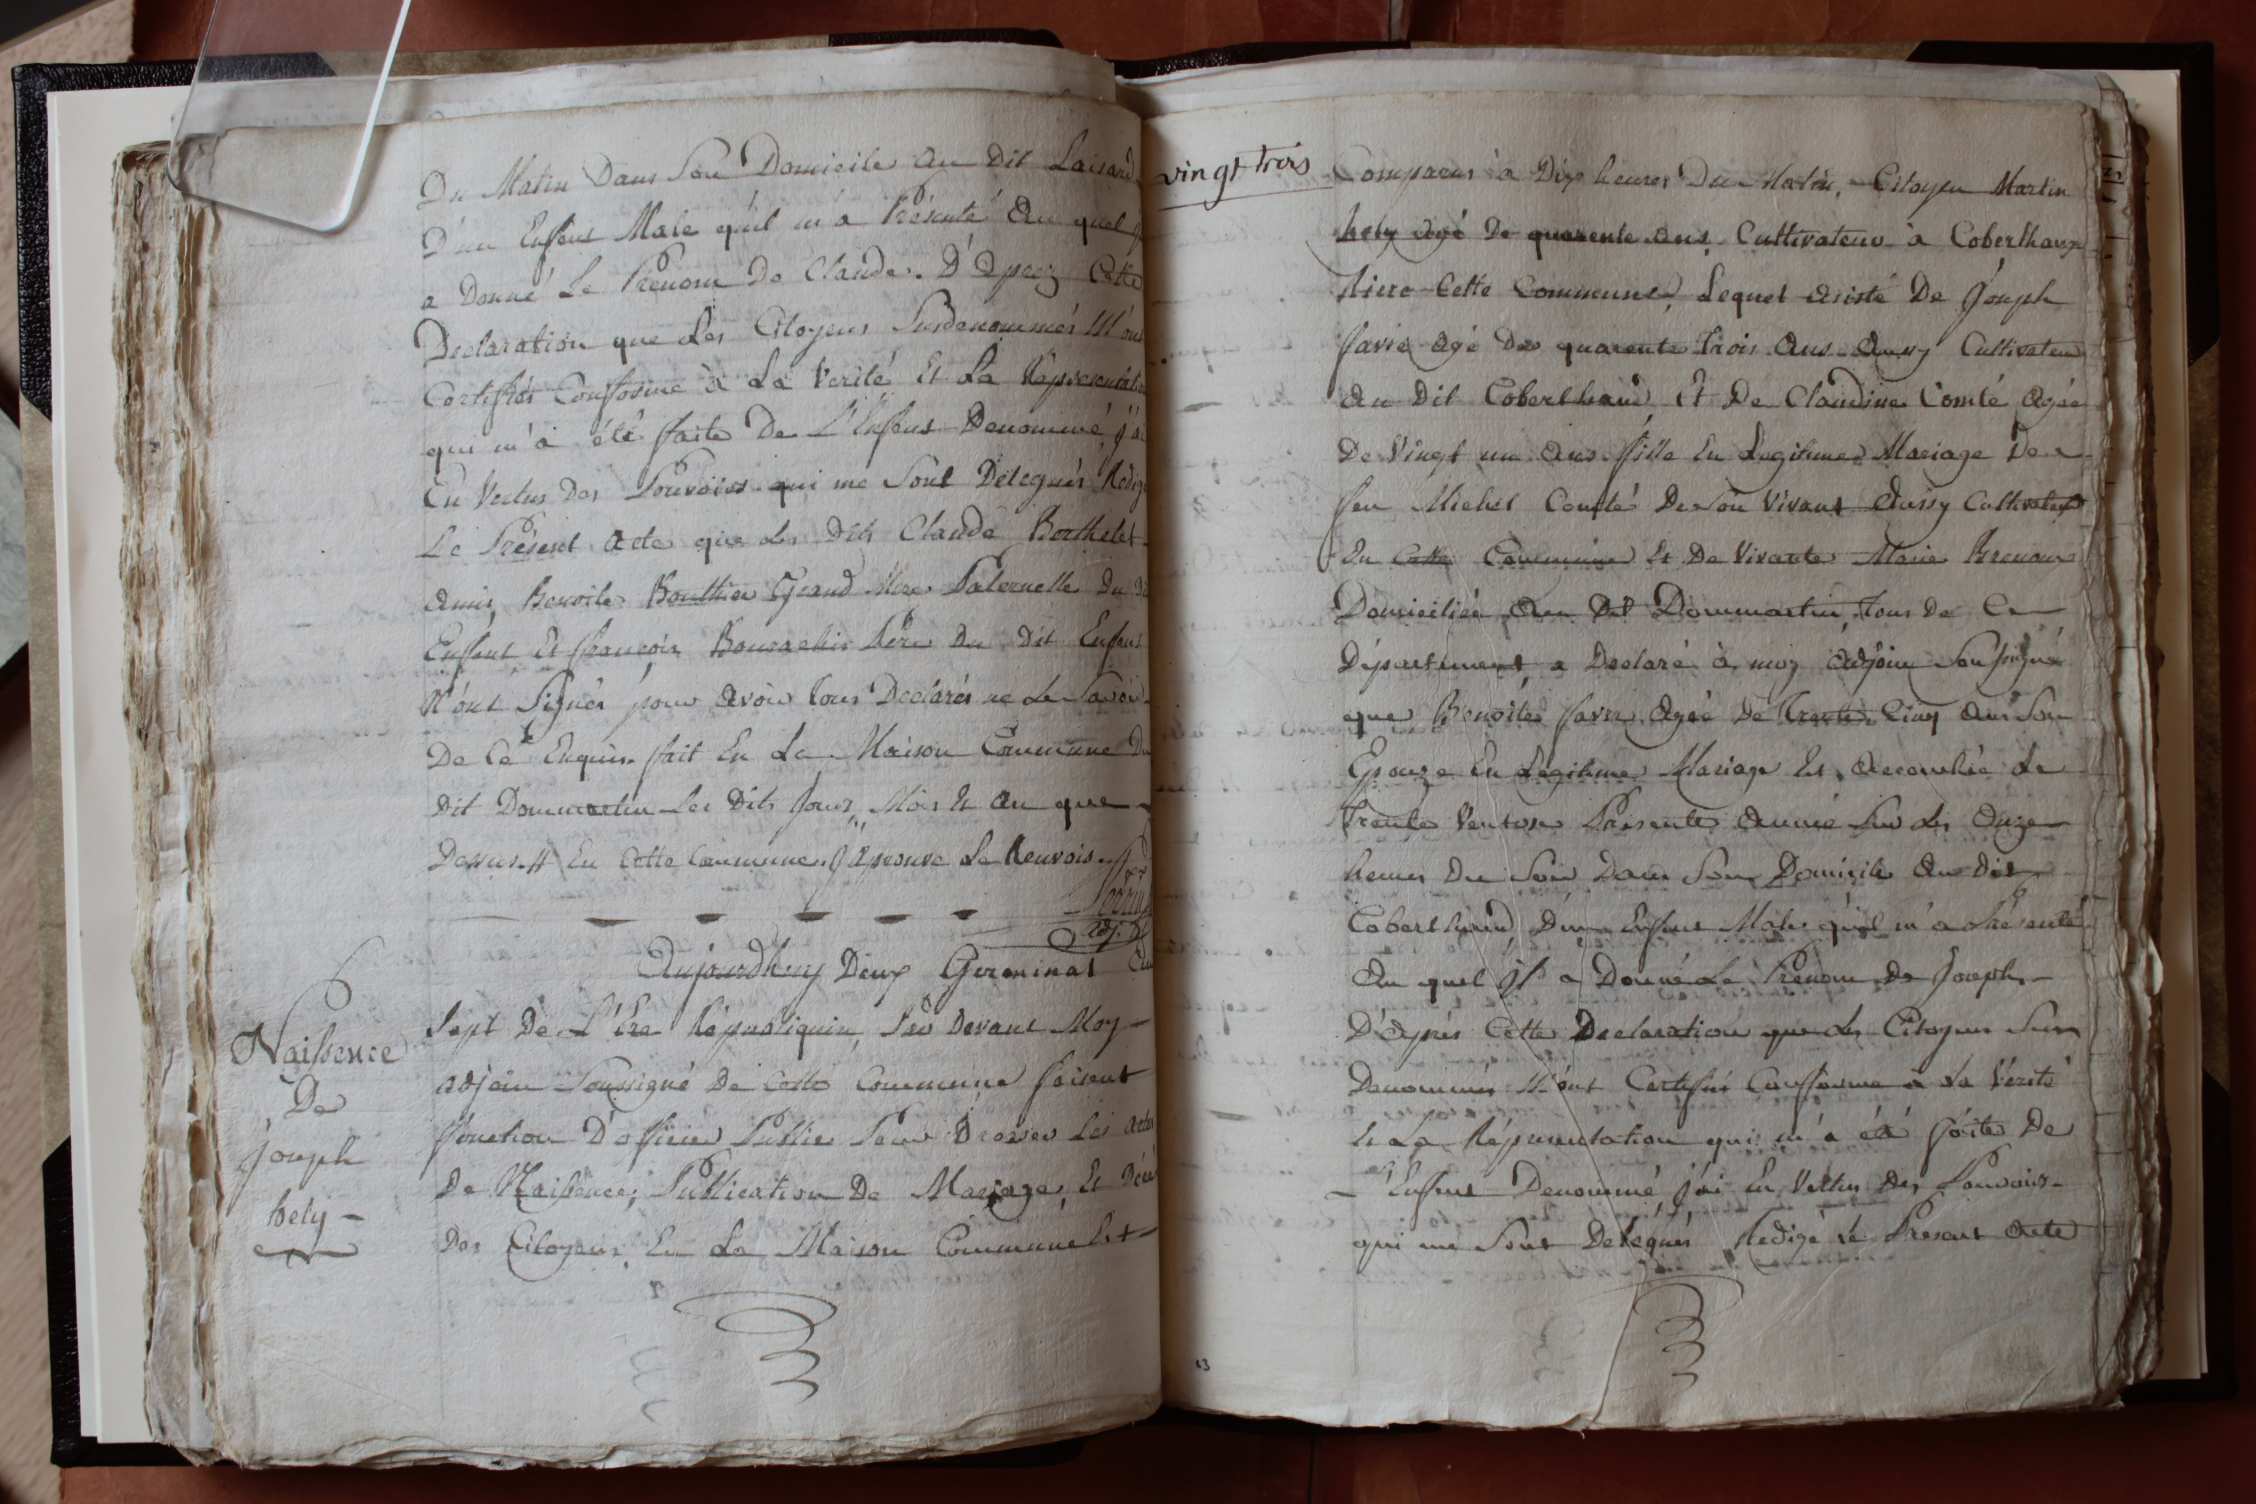 Du Matin Dans Son Domicile au dit Laisard
D'un Enfent Male qu'il m'a Présenté Au quel
a Donné Le Prenom De Claude. D'Aprez Cette
Declaration que Les Citoyens Surdenommés M'ont
Certifiés Conforme à La Verité Et La Représentation
qui m'a été faite De L'Enfent Denommé, j'ai
En Vertus Des Pouvoirs qui me Sont Délegués Redigé
Le Présent Acte que Les Dits Claude Berthelet
Amis, Benoite Bouthier Grand Mere Paternelle Du dit
Enfent Et françois Père Du Dit Enfent
N'ont Signés pour Avoir tous Declarés ne Le Savoir
De Ce Enquis. fait En La Maison Commune Du
Dit Dommartin Les Dits Jour, Mois Et An que
Dessus. // En Cette Commune. J'Aprouve Le Renvois.
Adj.
Aujourdhuy Deux Germinal An
Sept De L'Ere Républiquin, Par Devant Moy
adjoin Soussigné De Cette Commune faisent
fonction D'officier Public Pour Dresser Les Actes
De Naissence, Publication De Mariage, Et Décés
Des Citoyens, En La Maison Commune Est
Naissence
De
Joseph
hely
vingt trois
Comparus à Dix heures Du Matin, Citoyen Martin
hely agé De quarente Ans, Cultivateur à Coberthaux
Riere Cette Commune, Lequel Asisté De Joseph
favre Agé De quarente Trois Ans Aussy Cultivateur
Au Dit Coberthaud, Et De Claudine Comté Agée
De Vingt un Ans fille En Legitime Mariage De
feu Michel Comté De Son Vivant Aussy Cultivateur
En Cette Commune Et De Vivante Marie
Domiciliée Au Dit Dommartin, tous De Ce
Département, a Declaré à, moy Adjoin Sousigné
que Benoite favre Agée De Trente Cinq Ans Son
Epouze En Légitime Mariage Est Accouchée Le
Trente Ventose Présente Année Sur Les Onze
heures Du Soir Dans Son Domicile Au Dit
Coberthaud, D'un Enfent Male qu'il m'a Présenté
Au quel Il a Donné Le Prenom De Joseph
D'Aprés Cette Declaration que Les Citoyens Sur
Denommés M'ont Certifié Conforme à La Vérité
Et La Répresentation qui m'a été faite De
L'Enfent Denommé j'ai En Vertus Des Pouvoirs
qui me Sont Delégués Redigé Le Present Acte
23